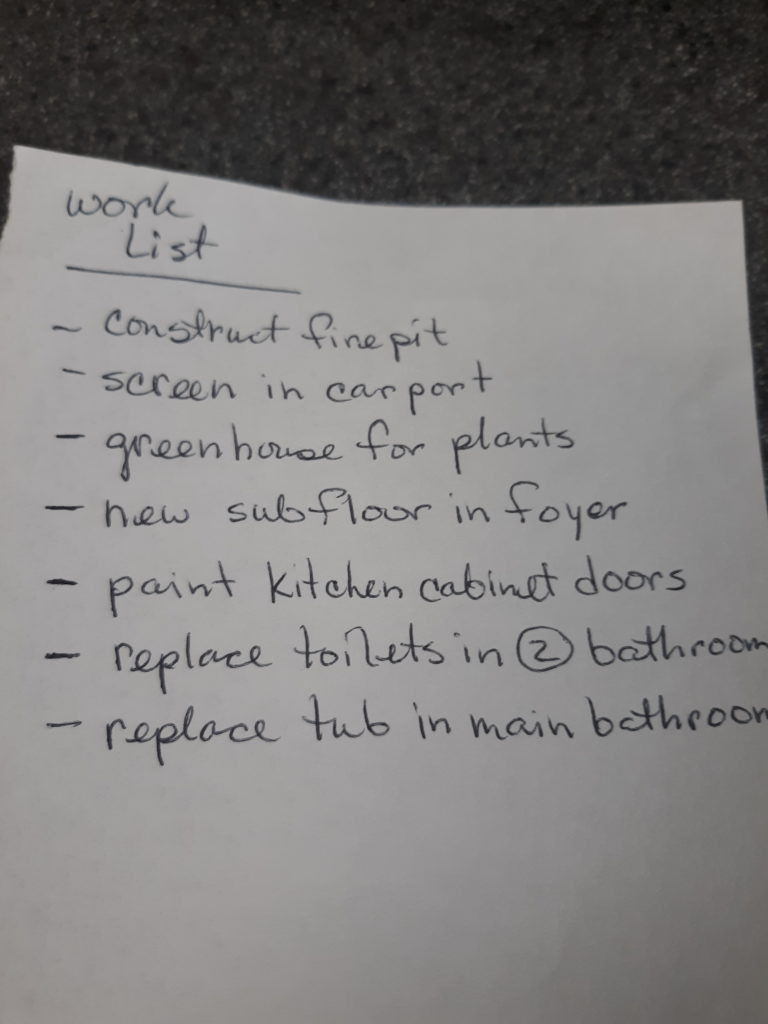 work
List
- construct firepit
- screen in carport
- greenhouse for plants
- new subfloor in foyer
- paint kitchen cabinet doors
- replace toilets in 2 bathroom
- replace tub in main bathroom